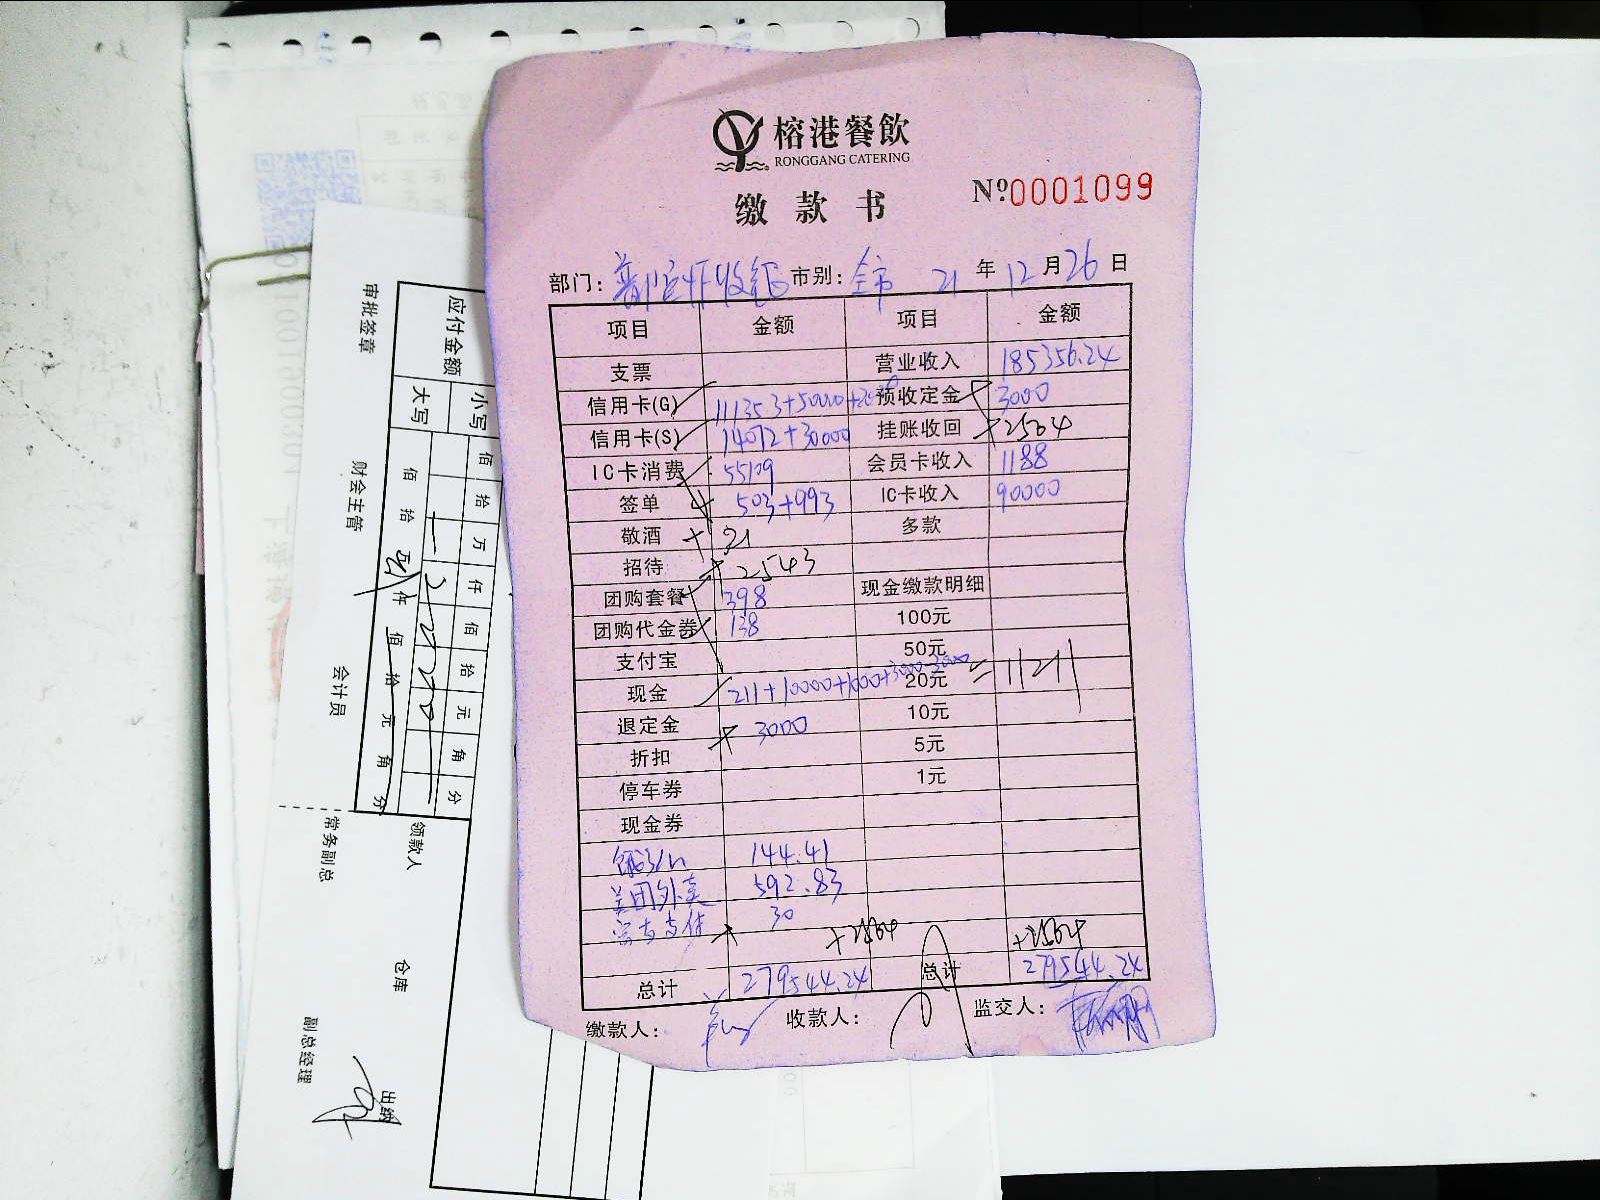 榕港餐飲
RONGGANG CATERING
缴款书
№0001099
部门： 市别：全市 21年12月26日
项目 金额 项目 金额
支票 营业收入 185356.24
信用卡(G) 111353+50000 预收定金 3000
信用卡(S) 14072+30000 挂账收回 +2504
IC卡消费 55109 会员卡收入 1188
签单 503+993 IC卡收入 90000
敬酒 31 多款
招待 2543
团购套餐 398 现金缴款明细
团购代金券 138 100元
支付宝 50元
现金 211+10000+1000+3000-3000 20元 =11211
退定金 3000 10元
折扣 5元
停车券 1元
现金券
144.41
美团外卖 592.83
30
+2504 +2504
总计 279544.24 总计 279544.24
缴款人： 收款人： 监交人：
应付金额
小写 佰拾万仟佰拾元角分
大写 佰拾万仟佰拾元角分
审批签章
财会主管
会计员
常务副总
副总经理
领款人
仓库
出纳